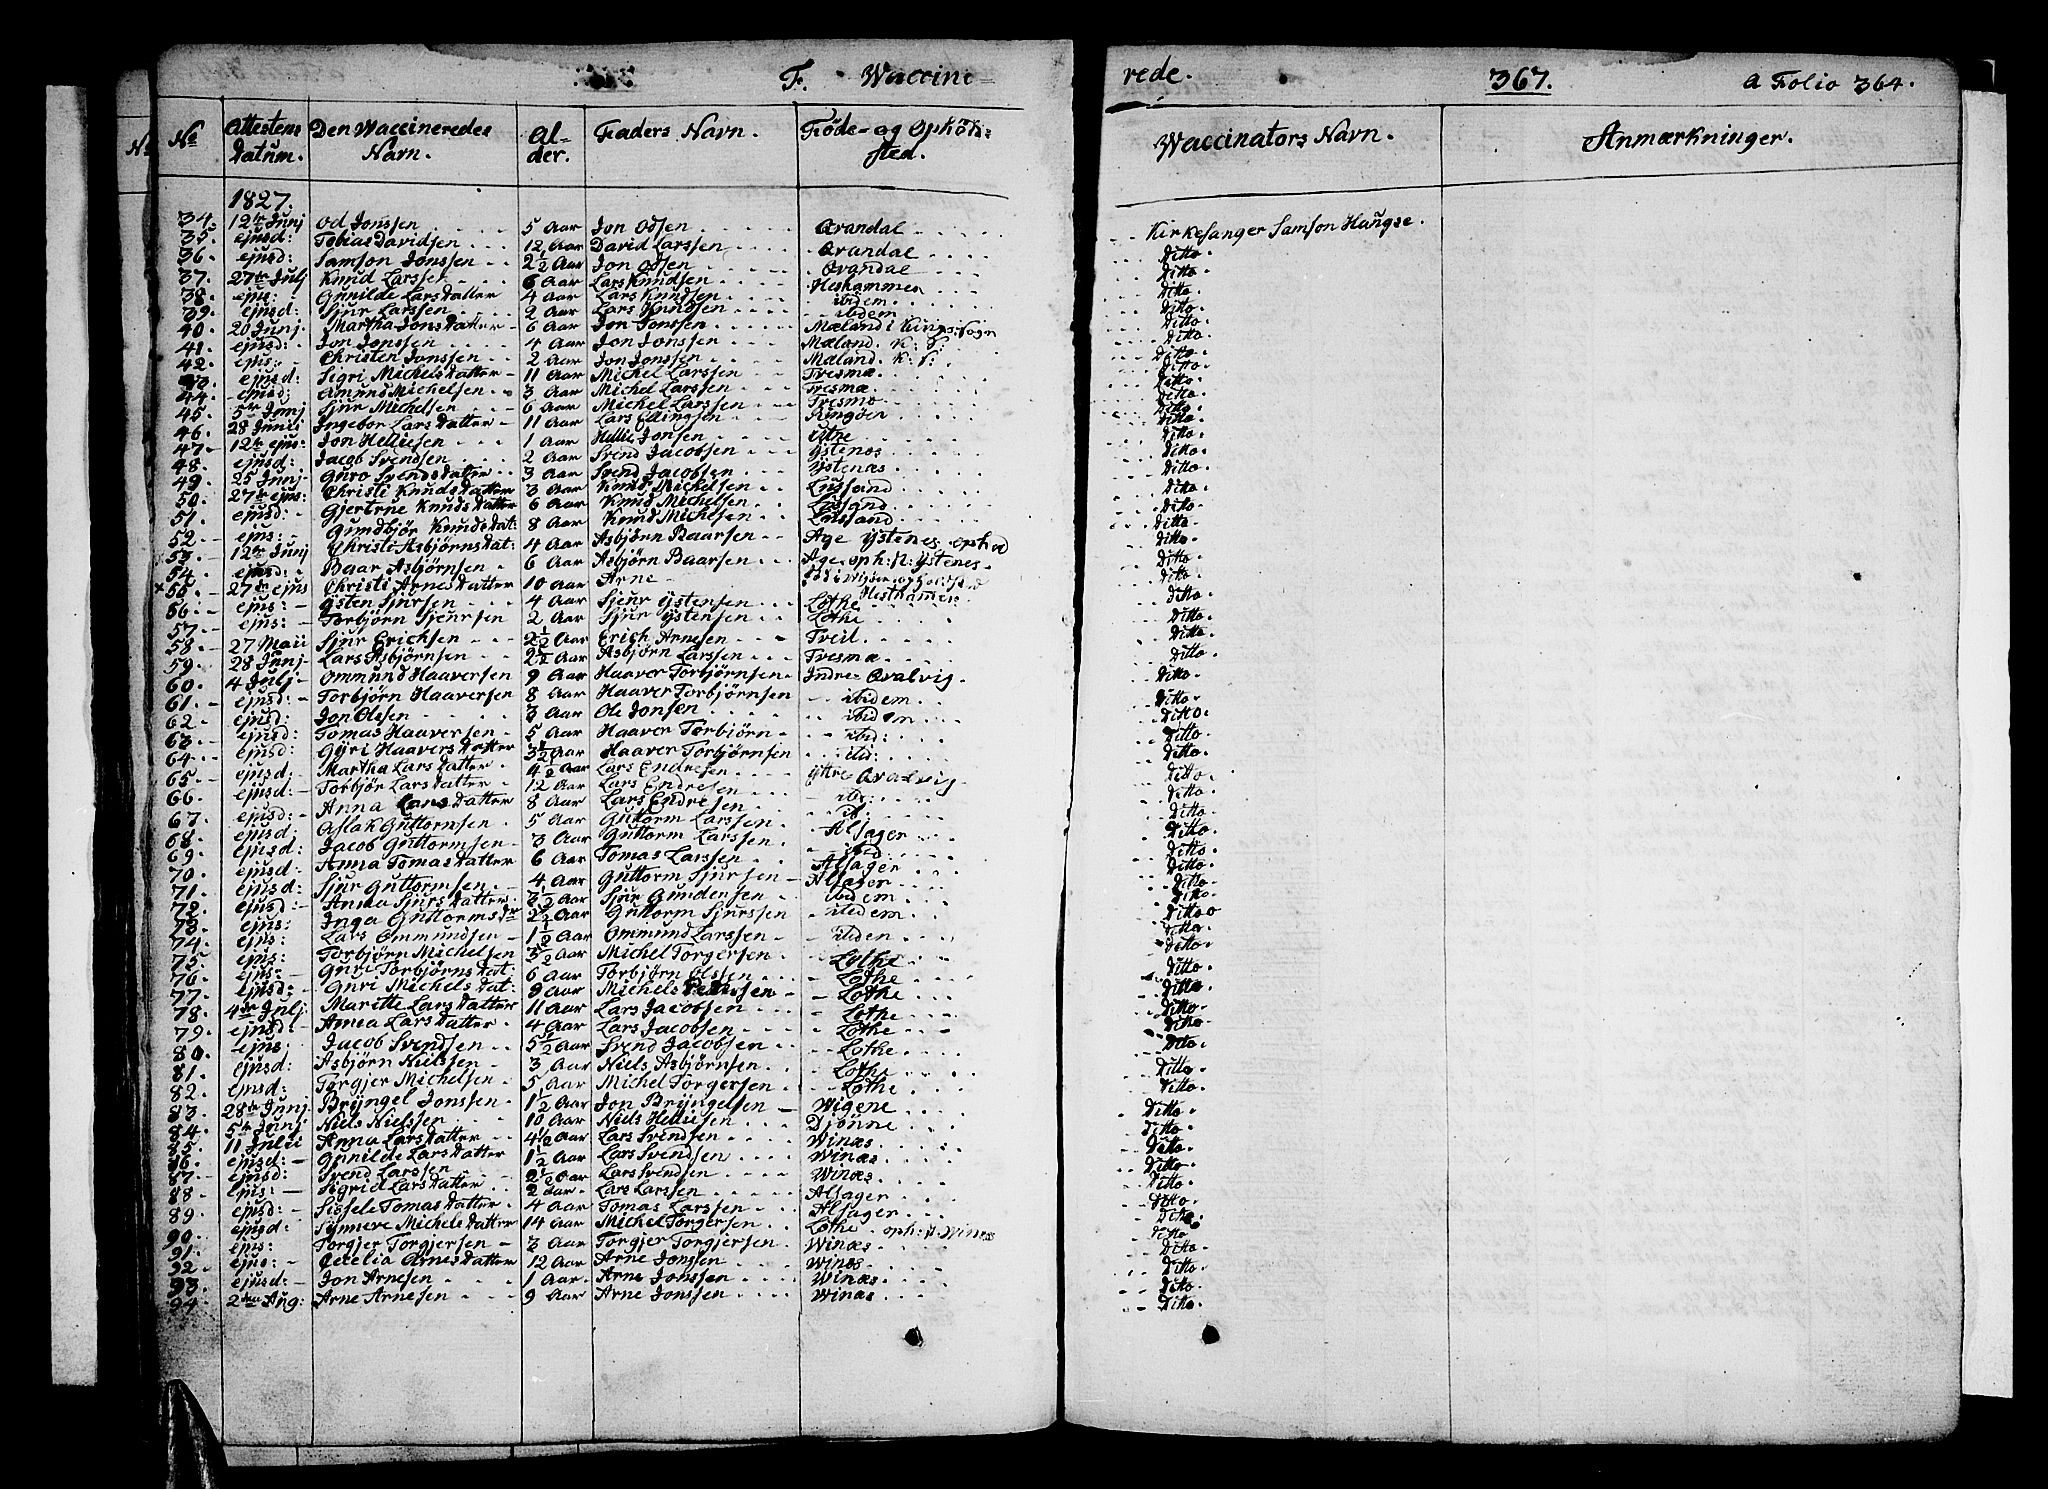 F. Waccine-
rede. 367. a Folio 364.
No Attestens Datum. Den Waccineredes Navn. Alder. Faders Navn. Føde- og Opholdssted. Waccinators Navn. Anmærkninger.
1827.
34. 12te Junj Od Jonssen 5 Aar Jon Odsen Qvandal Kirkesanger Samson Haugse.
35. ejusd: Tobias Davidsen 12 Aar David Larssen Qvandal Ditto.
36. ejusd: Samson Jonssen 2 1/2 Aar Jon Odsen Qvandal Ditto.
37. 27de Julj Knud Larssen 6 Aar Lars Knudsen Heshammer Ditto.
38. ejus: Gunilde Larsdatter 4 Aar Lars Knudsen ibidem Ditto.
39. ejusd: Sjur Larssen 2 Aar Lars Knudsen ibidem Ditto.
40. 20 Junj Martha Jonsdatter 6 Aar Jon Jonssen Mæland i Kings: Sogn Ditto.
41. ejusd: Jon Jonssen 4 Aar Jon Jonssen Mæland. K: S: Ditto.
42. ejus: Christen Jonssen 2 Aar Jon Jonssen Mæland. K: S: Ditto.
43. ejusd: Sigri Michelsdatter 11 Aar Michel Larssen Tresmæ. Ditto.
44. ejusd: Amund Michelsen 3 Aar Michel Larssen Tresmæ. Ditto.
45. 5te Junj Sjur Michelsen 6 Aar Michel Larssen Tresmo Ditto.
46. 28 Junii Ingebor Larsdatter 11 Aar Lars Ringøen Ditto.
47. 12te ejus: Jon Helliesen 1 Aar Hellie Jonsen Ystre Ditto.
48. ejusd: Jacob Svendsen 2 Aar Svend Jacobsen Ystenes Ditto.
49. 25 Junj Guro Svendsdatter 3 Aar Svend Jacobsen Ystenæs Ditto.
50. 27de ejus: Christi Knudsdatter 3 Aar Knud Michelsen Lussand Ditto.
51. ejusd: Gjertrue Knudsdatter 6 Aar Knud Michelsen Lussand Ditto.
52. ejus: Gundbjør Knudsdat: 8 Aar Knud Michelsen Lussand Ditto.
53. 12te Junj Christi Asbjørnsdat: 4 Aar Asbjørn Baarsen Age Ystenes Ditto.
54. ejusd: Baar Asbjørnsen 6 Aar Asbjørn Baarsen Age. oph: p: Ystenes. Ditto.
x 55. 27de ejus Christi Arnesdatter 10 Aar Arne Hesthamer Ditto.
56. ejus: Ysten Sjursen 4 Aar Sjur Ystensen Lothe Ditto.
57. ejus: Torbjørn Sjursen 2 Aar Sjur Ystensen Lothe Ditto.
58. 27 Maii Sjur Erichsen 2 1/2 Aar Erich Arnesen Tveit Ditto.
59. 28 Junj Lars Asbjørnsen 2 1/2 Aar Asbjørn Larssen Tresmæ Ditto.
60. 4 Julj Ommund Haaversen 9 Aar Haaver Torbjørnsen Indre Qvalvig. Ditto.
61. ejusd: Torbjørn Haaversen 8 Aar Haaver Torbjørnsen ibidem Ditto.
62. ejusd: Jon Olssen 3 Aar Ole Jonsen ibidem Ditto.
63. ejusd: Tomas Haaversen 5 Aar Haaver Torbiörn ibid: Ditto.
64. ejusd: Gyri Haaversdatter 3 1/2 Aar Haaver Torbjørnsen ibid: Ditto.
65. ejusd: Martha Larsdatter 4 1/2 Aar Lars Endresen Yttre Qvalvig Ditto.
66. ejusd: Torbjør Larsdatter 12 Aar Lars Endresen ibi: Ditto.
67. ejusd: Anna Larsdatter 8 Aar Lars Endresen ib: Ditto.
68. ejusd: Aslak Guttormsen 5 Aar Guttorm Larssen Alsager Ditto.
69. ejusd: Jacob Guttormsen 3 Aar Guttorm Larssen ibid: Ditto.
70. ejusd: Anna Tomasdatter 6 Aar Tomas Larssen Alsager Ditto.
71. ejusd: Sjur Guttormsen 4 Aar Guttorm Sjursen Alsager Ditto.
72. ejusd: Anna Sjursdatter 3 1/2 Aar Sjur Gundersen ibidem Ditto.
73. ejus: Inga Guttormsdr 2 1/2 Aar Guttorm Sjurssen ibidem Ditto
74. ejus: Lars Ommundsen 1 1/2 Aar Ommund Larssen ibiden Ditto.
75. ejus: Torbjørn Michelsen 3 1/2 Aar Michel Torgersen Lothe Ditto.
76. ejus: Guri Torbjørnsdat: 6 Aar Torbjørn Olssen Lothe Ditto.
77. ejusd: Guri Michelsdat: 9 Aar Michel Lothe Ditto.
78. 4de Julj Maritte Larsdatter 11 Aar Lars Jacobsen Lothe Ditto.
79. ejusd: Anna Larsdatter 4 Aar Lars Jacobsen Lothe Ditto.
80. ejus: Jacob Svendsen 5 1/2 Aar Svend Jacobsen Lothe Ditto.
81. ejusd: Asbjørn Nielssen 3 Aar Niels Asbjørnsen Lothe Ditto.
82. ejusd: Torgjer Michelsen 5 Aar Michel Torgersen Lothe Ditto.
83. 28de Junj Bryngel Jonssen 1 1/2 Aar Jon Bryngelsen Wigene Ditto.
84. 5te Junj Niels Nielssen 10 Aar Niels Helliesen Djønne Ditto.
85. 11 Julii Anna Larsdatter 4 1/2 Aar Lars Svendsen Winæs Ditto.
86. ejusd: Gunilde Larsdatter 1 1/2 Aar Lars Svendsen Winæs Ditto.
87. ejusd: Svend Larssen 2 1/2 Aar Lars Svendsen Winæs Ditto.
88. ejus: Sigrid Larsdatter 2 Aar Lars Larssen Alsager Ditto.
89. ejusd: Sissele Tomasdatter 4 Aar Tomas Larssen Alsager Ditto.
90. ejusd: Synneve Michelsdatter 14 Aar Michel Torgersen Lothe oph: p: Winæs Ditto
91. ejus: Torgjer Torgjersen 3 Aar Torgjer Torgjersen Winæs Ditto.
92. ejus: Cecelia Arnesdatter 12 Aar Arne Jonssen Winæs Ditto.
93. ejusd: Jon Arnesen 1 Aar Arne Jonssen Winæs Ditto.
94. 2den Aug: Arne Arnesen 9 Aar Arne Jonssen Winæs Ditto.